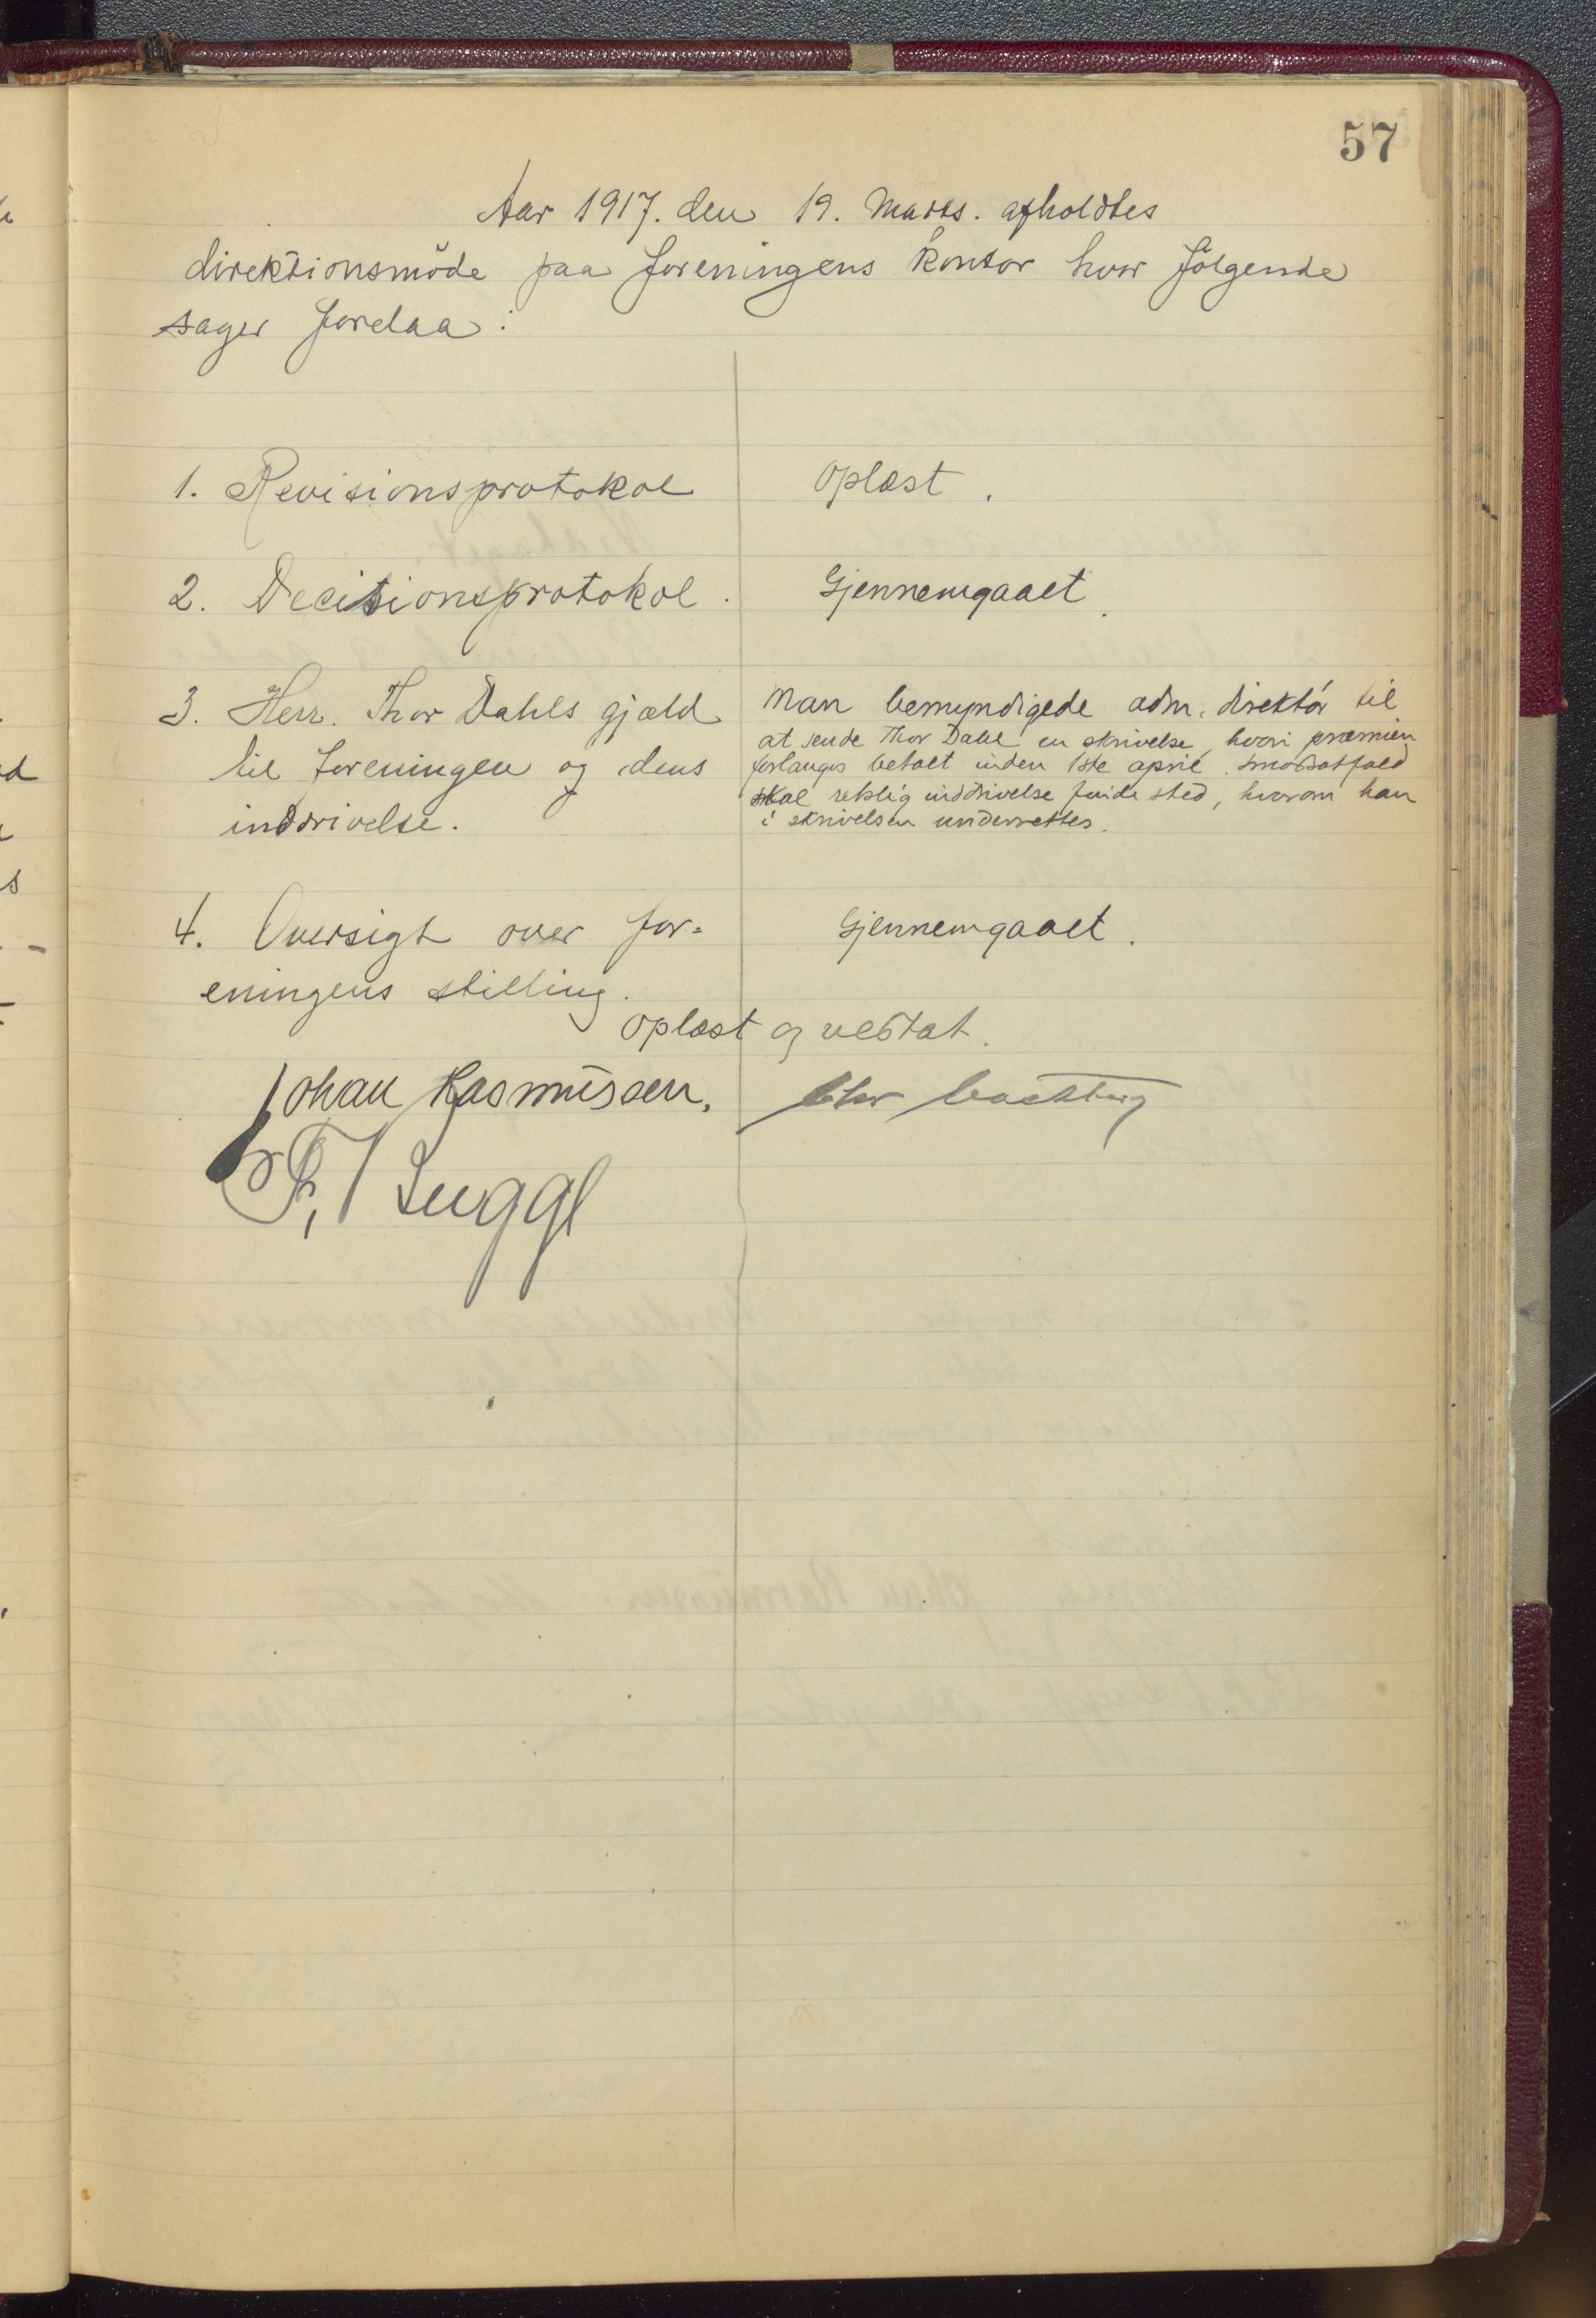 57
Aar 1917. den 19. Marts. afholdtes
direktionsmöde paa foreningens kontor hvor fölgende
sager forelaa:
1. Revisionsprotokol
Oplæst.
2. Decisionsprotokol.
Gjennemgaaet.
3. Herr. Thor Dahls gjæld
til foreningen og dens
inddrivelse.
Man bemyndigede adm. direktör til
at sende Thor Dahl en skrivelse, hvori præmien
forlanges betalt inden 1ste april. I modsat fald
skal retslig inddrivelse finde sted, hvorom han
i skrivelsen underrettes.
4. Oversigt over for=
eningens stilling.
Gjennemgaaet.
Oplæst og vedtat.
Johan Rasmussen.
Chr